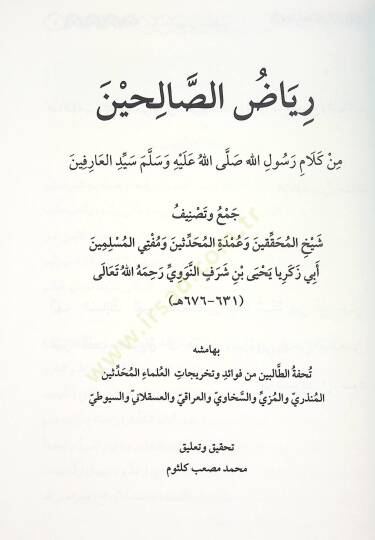 رِيَاضُ الصَّالِحِيْنَ
مِنْ كَلَامِ رَسُولِ اللهِ صَلَّى اللهُ عَلَيْهِ وَسَلَّمَ سَيِّدِ العَارِفِينَ
جَمْعُ وَتَصْنِيفُ
شَيْخِ المُحَقِّقِينَ وَعُمْدَةِ المُحَدِّثِينَ وَمُفْتِي المُسْلِمِينَ
أَبِي زَكَرِيا يَحْيَى بْنِ شَرَفٍ النَّوَوِيِّ رَحِمَهُ اللهُ تَعَالَى
(٦٣١-٦٧٦هـ)
بهامشه
تُحفةُ الطَّالبين من فوائدِ وتخريجاتِ العُلماءِ المُحَدِّثين
المُنذريّ والمُزيِّ والسَّخاويِّ والعراقيّ والعسقلانيِّ والسيوطيّ
تحقيق وتعليق
محمد مصعب كلثوم